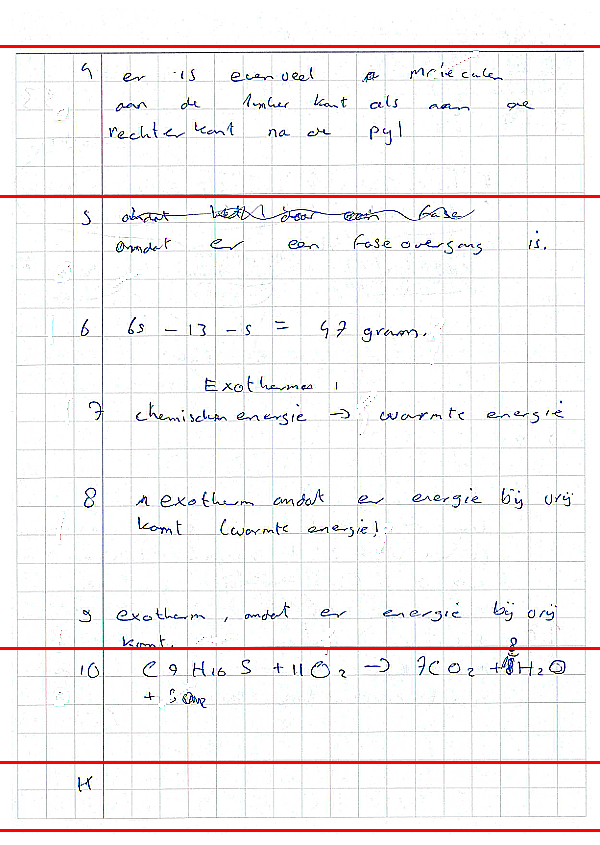 4 er is evenveel moleculen
aan de linker kant als aan de
rechter kant na de pijl
5
omdat er een fase overgang is.
6 65 - 13 - 5 = 47 gram.
Exothermes
7 chemischen energie → warmte energie
8 exotherm omdat er energie bij vrij
komt (warmte energie).
9 exotherm, omdat er energie bij vrij
komt.
10 C9H16S + 11O2 → 7CO2 + 8H2O
+
11